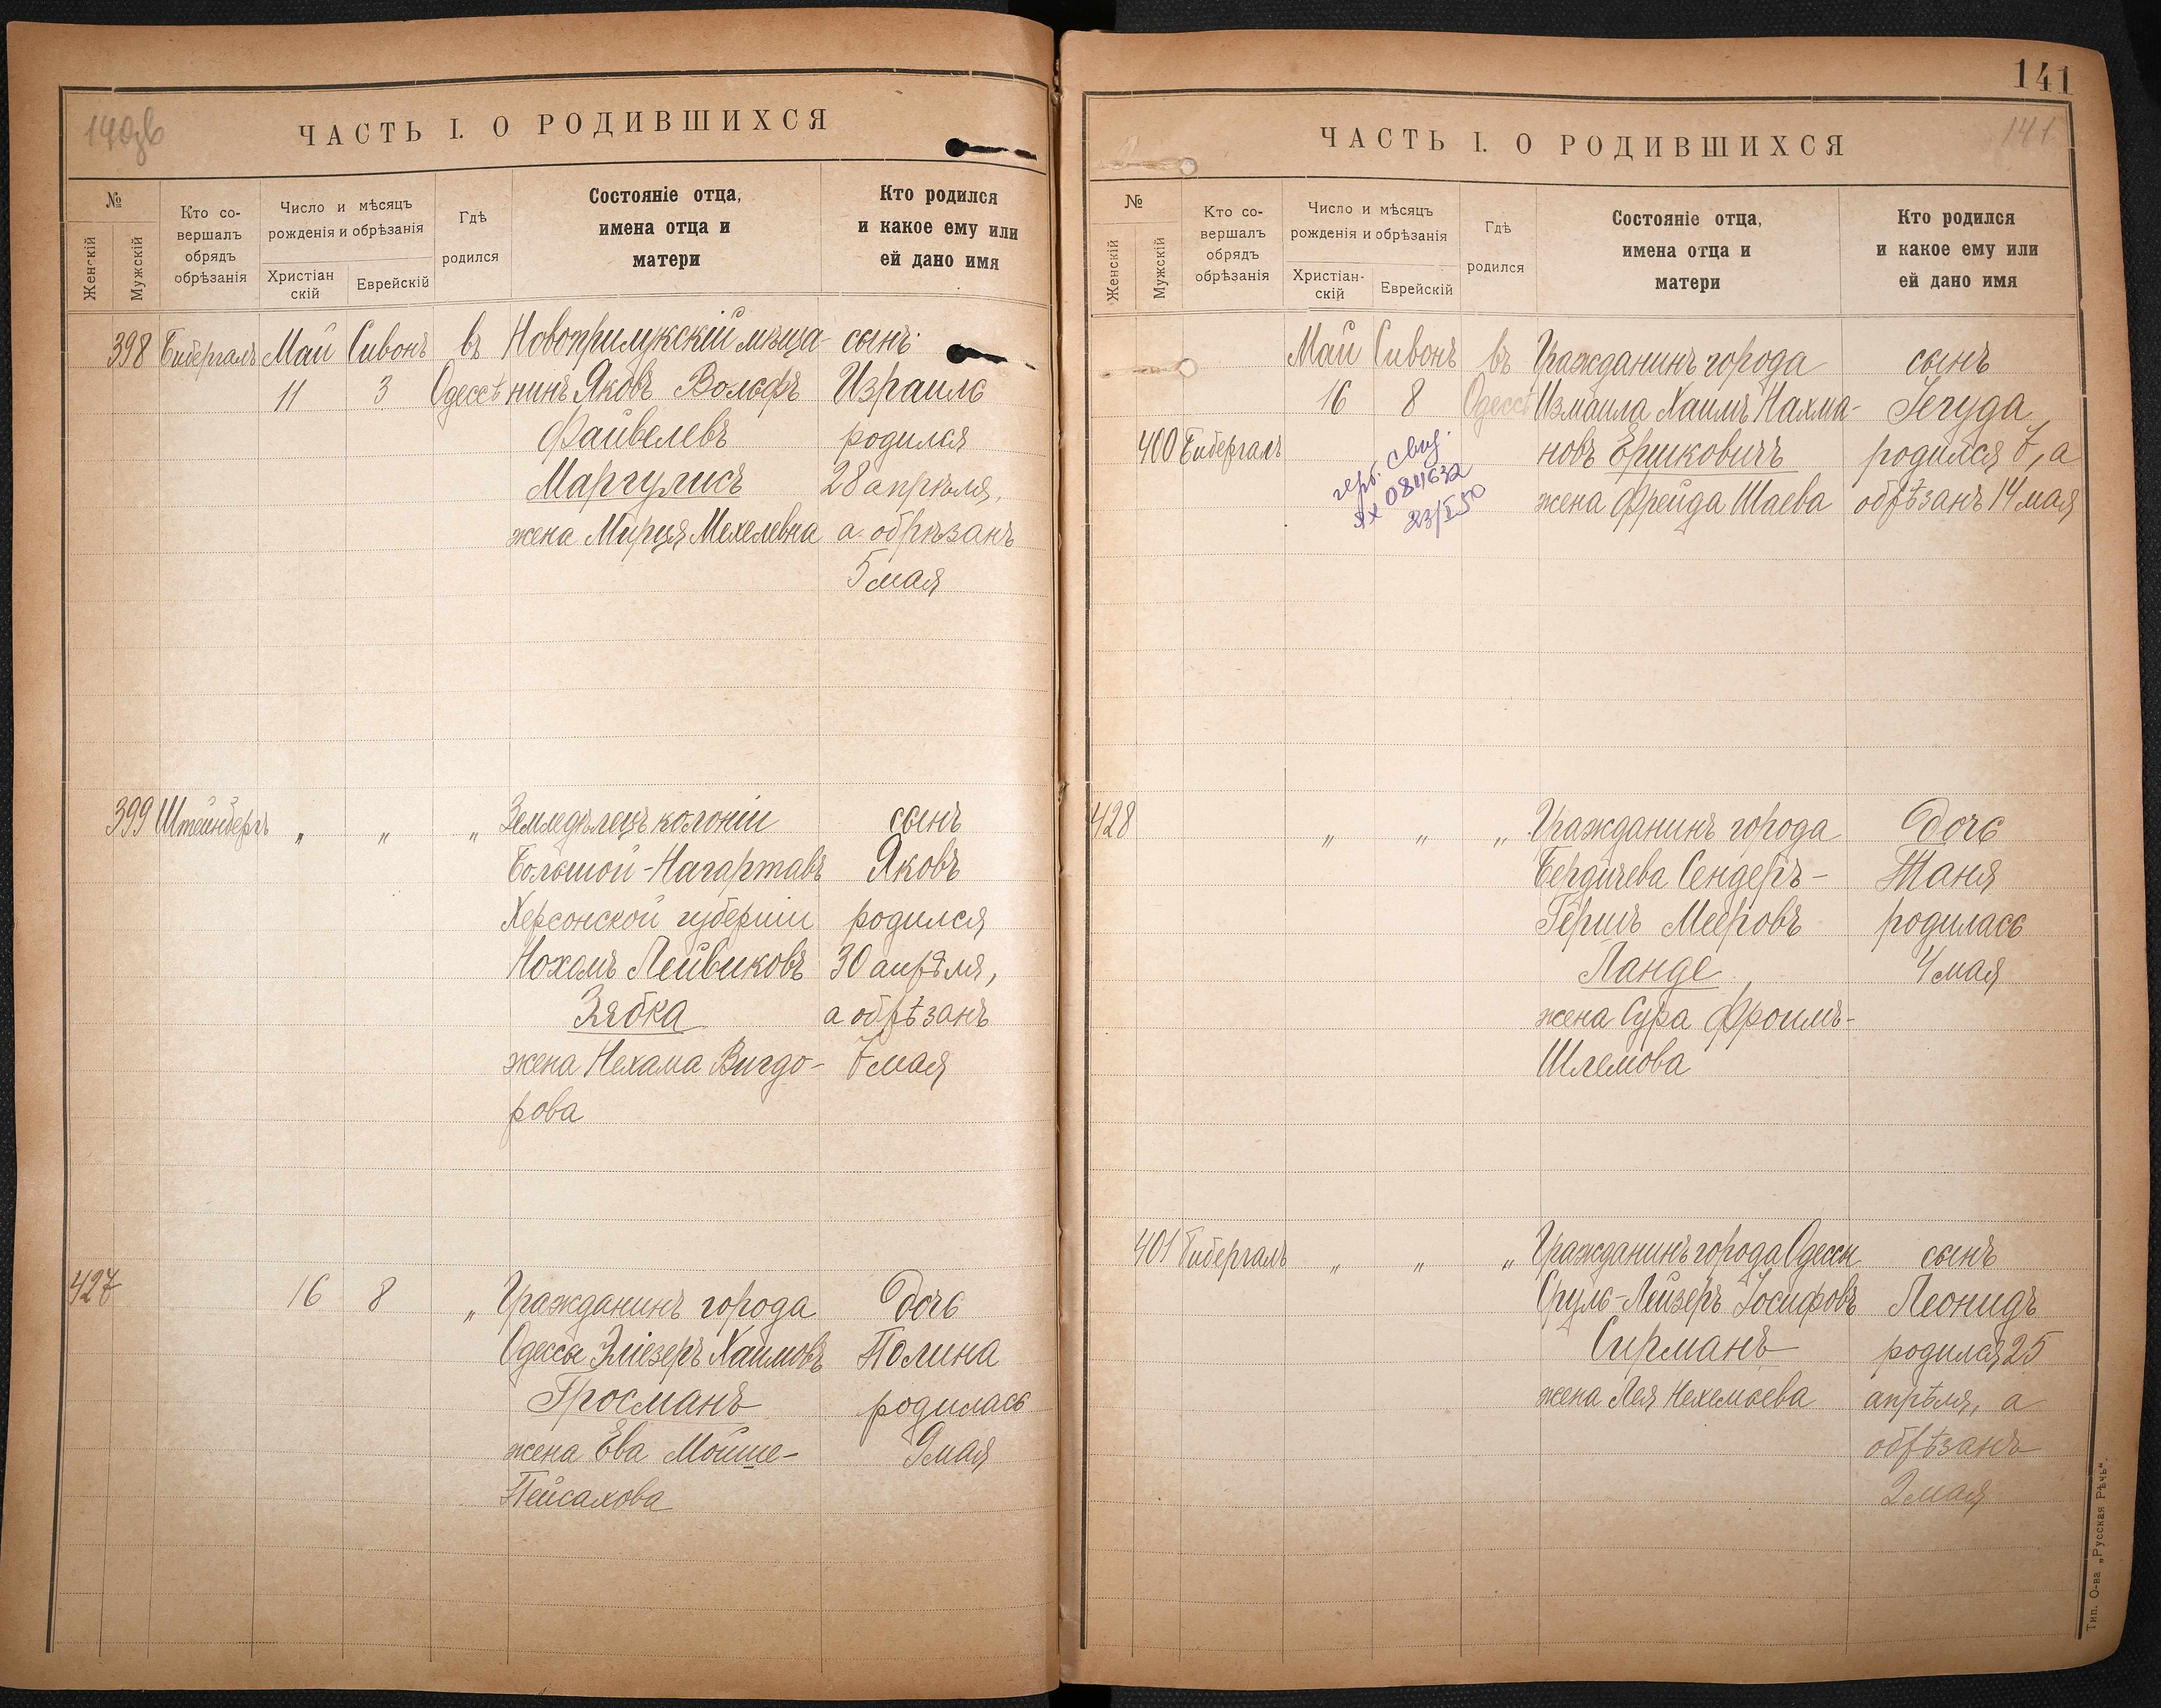 140зв
ЧАСТЬ I. О РОДИВШИХСЯ
№
Женскій
Мужскій
Кто со-
вершалъ
обрядъ
обрѣзанія
Число и мѣсяцъ
рожденія и обрѣзанія
Христіан
скій
Еврейскій
Гдѣ
родился
Состояніе отца,
имена отца и
матери
Кто родился
и какое ему или
ей дано имя
398 Бибергалъ Май Сивонъ въ Новоприлукскій мѣща- сынъ
11 3 Одессѣ нинъ Яковъ Вольфъ Израиль
Файвелевъ родился
Маргулисъ 28 апрѣля,
жена Мирця Мехелевна а обрѣзанъ
5 мая
399 Штейнбергъ „ „ „ Земледѣлецъ колоніи сынъ
Большой-Нагартавъ Яковъ
Херсонской губерніи родился
Нохомъ Лейвиковъ 30 апрѣля,
Зябка а обрѣзанъ
жена Нехама Вигдо- 7 мая
рова
427 16 8 „ Гражданинъ города Дочь
Одессы Эліезеръ Хаимовъ Полина
Гросманъ родилась
жена Ева Мойше- 9 мая
Пейсахова
141
ЧАСТЬ I. О РОДИВШИХСЯ
141
№
Женскій
Мужскій
Кто со-
вершалъ
обрядъ
обрѣзанія
Число и мѣсяцъ
рожденія и обрѣзанія
Христіан-
скій
Еврейскій
Гдѣ
родился
Состояніе отца,
имена отца и
матери
Кто родился
и какое ему или
ей дано имя
Май Сивонъ въ Гражданинъ города сынъ
16 8 Одессѣ Измаила Хаимъ Нахма- Іегуда
400 Бибергалъ новъ Ершковичъ родился 7, а
жена Фрейда Шаева обрѣзанъ 14 мая
свид.
084632
23/I 50
428 „ „ „ Гражданинъ города Дочь
Бердичева Сендеръ- Таня
Гершъ Мееровъ родилась
Ланде 4 мая
жена Сура Фроимъ-
Шлемова
401 Бибергалъ „ „ „ Гражданинъ города Одессы сынъ
Сруль-Лейзеръ Іосифовъ Леонидъ
Сирманъ родился 25
жена Лея Нехемьева апрѣля, а
обрѣзанъ
2 мая
Тип. О-ва „Русская Рѣчь“.